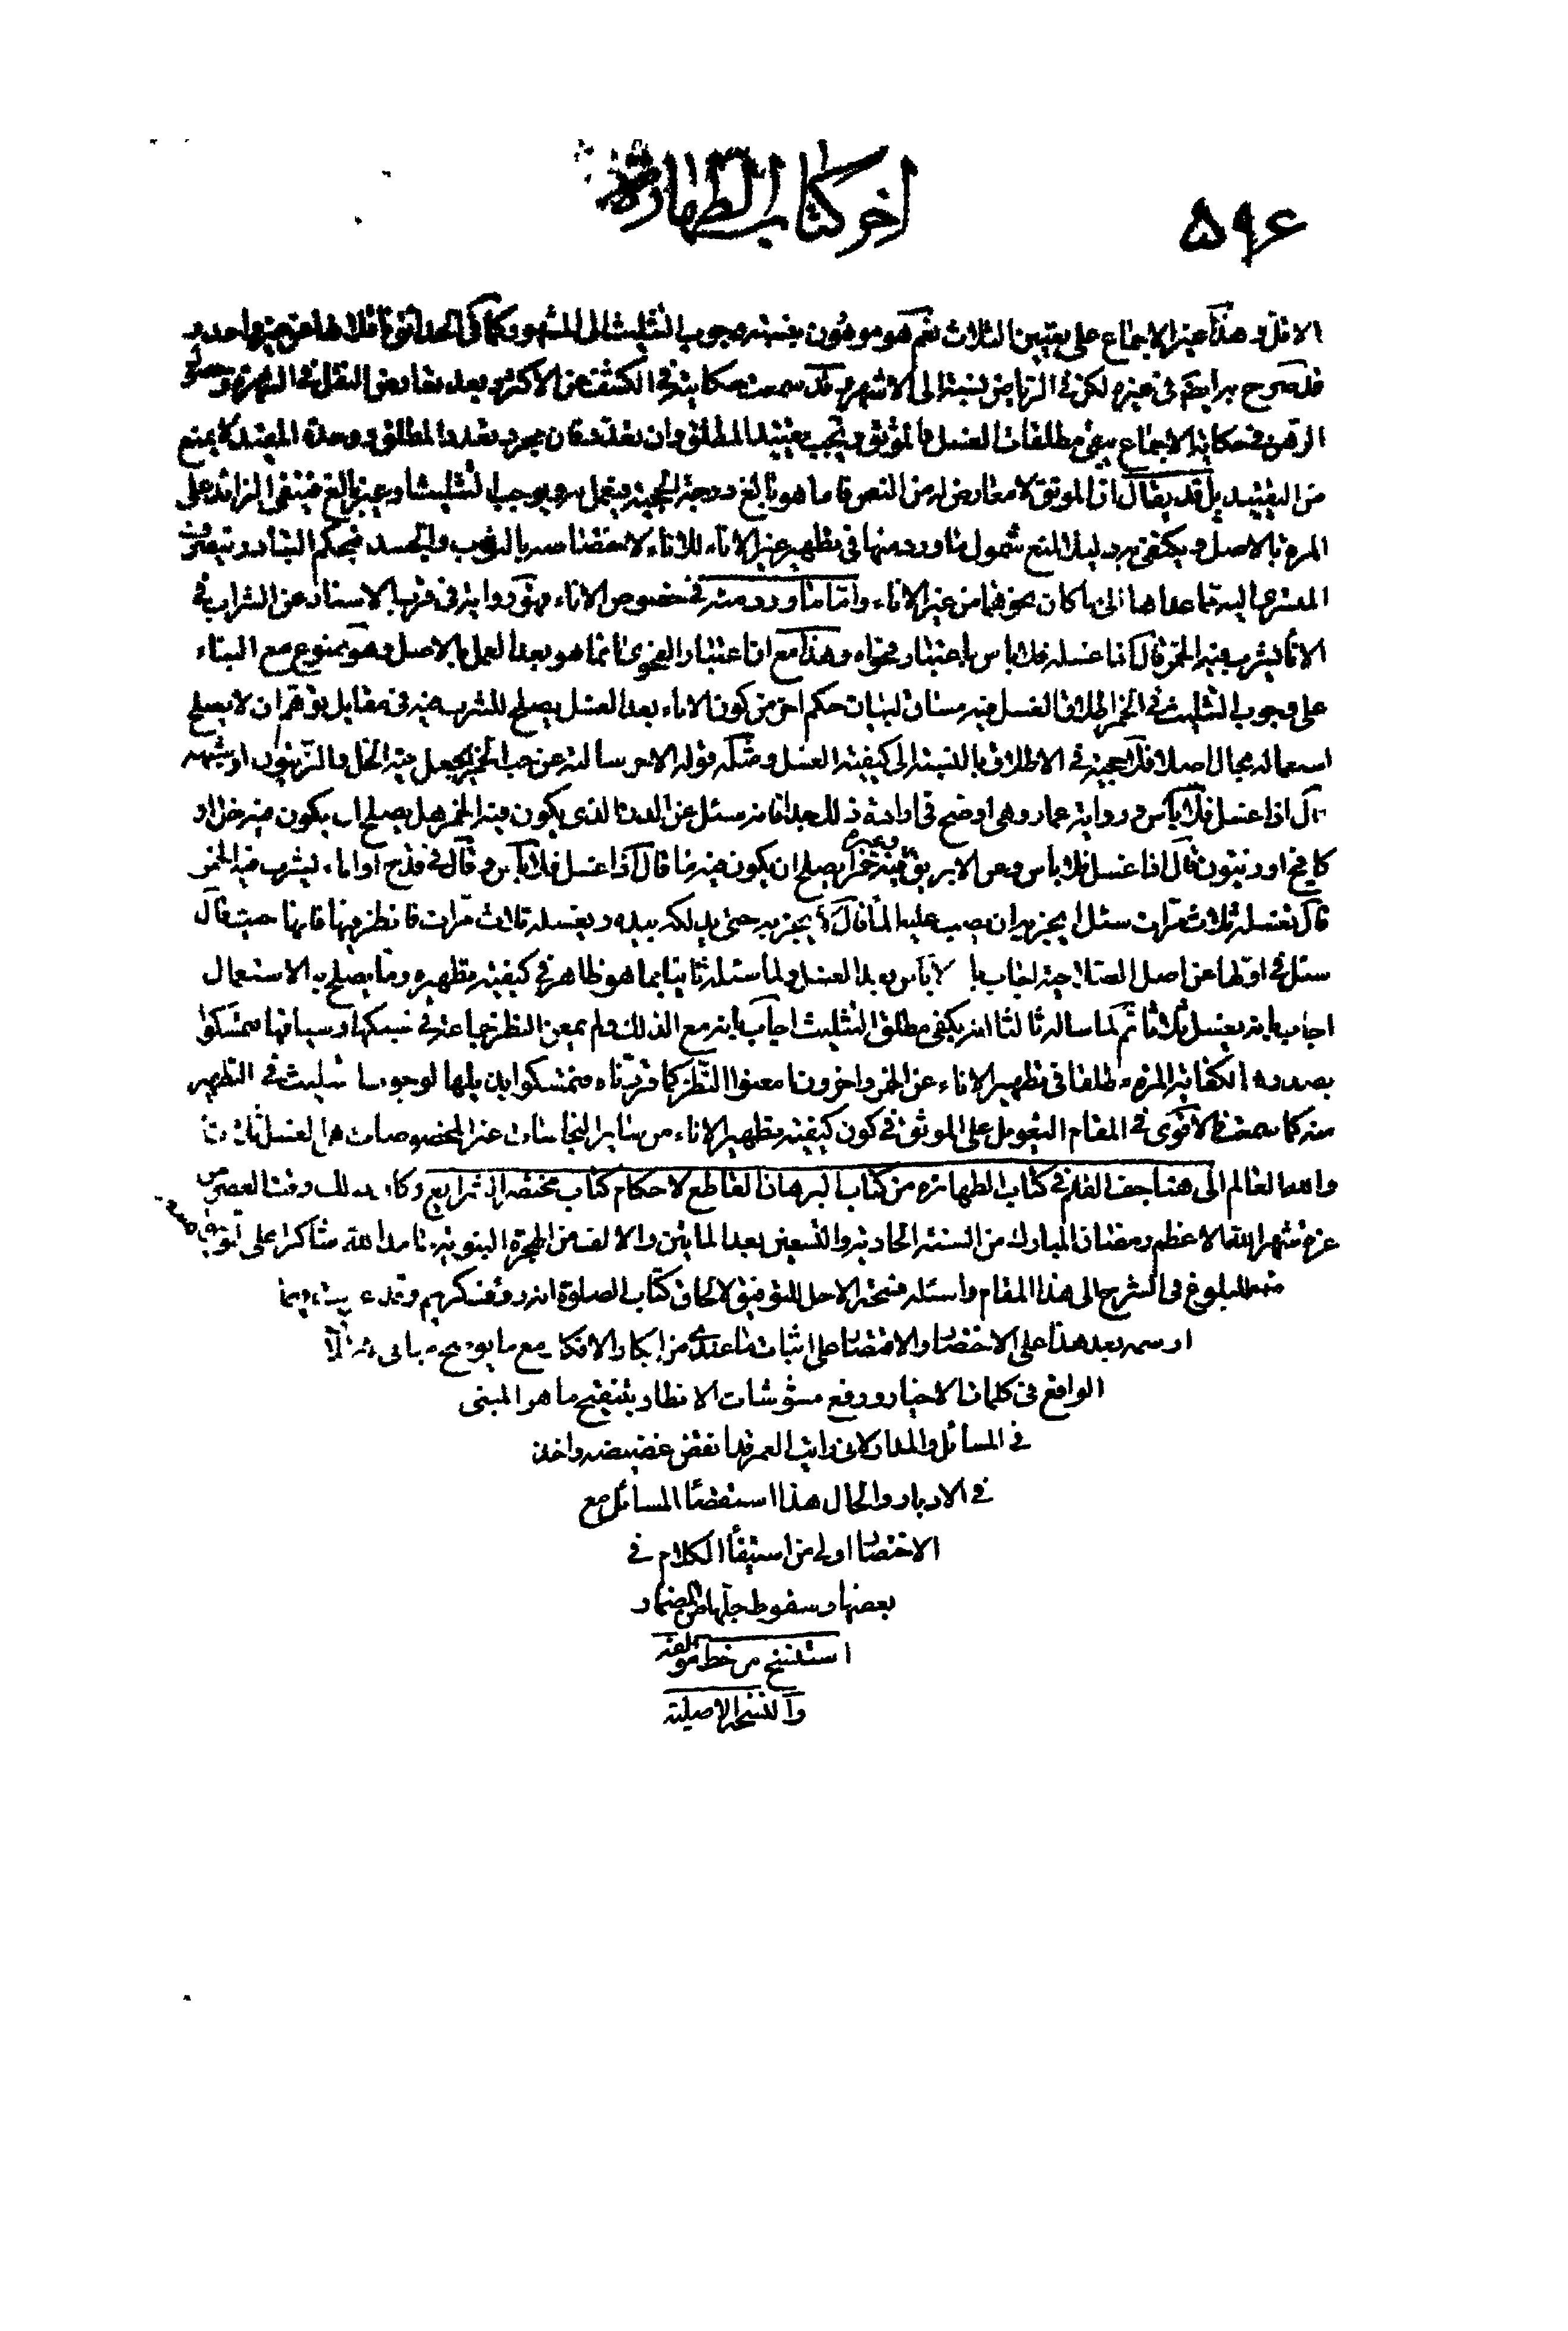 ۵۹۶
اخر كتاب الطهارة
الاقل وهذا عين الاجماع على تعيين الثلاث نعم هو موهون بنسبته وجوب التثليث الى المشهور كما فى الحدائق ناقلا لها عن غير واحد و
قد صرح به ايضا فى غيره لكن فى الرياض نسبته الى الاشهر وقد سمعت حكايته فى الكشف عن الاكثر وبعد تعارض النقل فى الشهرة و
الوهن فى حكاية الاجماع يبقى مطلقات الغسل والموثق ويجب تقييد المطلق وان تعدد فان مجرد تعدد المطلق ووحدة المقيد لا يمنع
من التقييد بل قد يقال ان الموثق لا معارض له من النص فاما هو بالغ درجة الحجية فيعمل به ويوجب التثليث او غير بالغ فينفى الزائد على
المرة بالاصل و يكتفى به دليلا لمنع شمول ما ورد منها فى تطهير غير الاناء للاناء لاختصاصه بالثوب والجسد فيحكم التبادر
المتشرعة اليه تماعداها الى ما كان نحوهما من غير الاناء واما ما ورد منه فى خصوص الاناء فهو رواية فى قرب الاسناد عن الشراب فى
الاناء يشرب فيه الخمر قال اذا غسله فلا باس باعتبار فحواه وهذا مع ان اعتبار الفحوى انما هو بعد العمل بالاصل وهو ممنوع مع البناء
على وجوب التثليث فى الخمر اطلاق الغسل فيه مساق لبيان حكم اخر من كون الاناء بعد الغسل يصلح للشرب فيه فى مقابل توهم ان لا يصلح
استعماله بحال اصلا فلا حجية فى الاطلاق بالنسبة الى كيفية الغسل ومثله قوله الاخر سالته عن حب الخمر ايجعل فيه الخل والزيتون او شبهه
قال اذا غسل فلا باس ورواية عمار وهى اوضح فى افادة ذلك جدا فانه سئل عن الدن الذى يكون فيه الخمر هل يصلح ان يكون فيه خل او
كامخ او زيتون قال اذا غسل فلا باس وعن الابريق وغيره فيه خمر ايصلح ان يكون فيه ماء قال اذا غسل فلا باس وقال فى قدح او اناء يشرب فيه الخمر
قال تغسله ثلاث مرات سئل ايجزيه ان يصب عليه الماء قال لا يجزيه حتى يدلكه بيده ويغسله ثلاث مرات فانظر فيها فانها حيث قال
سئل فى اولها عن اصل الصلاحية اجاب با لا باس بعد الغسل ولما سئله ثانيا بما هو ظاهر فى كيفية تطهيره وما يصلح به الاستعمال
اجاب بانه يغسل ثلاثا ثم لما ساله ثالثا انه يكفى مطلق التثليث اجاب بانه مع الدلك ولم يمعن النظر جماعة فى سبكها وسياقها فتمسكوا
بصدرها لكفاية المرة مطلقا فى تطهير الاناء عن الخمر واخرون امعنوا النظر كما قربناه فتمسكوا بذيلها لوجوب التثليث فى التطهير
منه كما سمعت فالاقوى فى المقام التعويل على الموثق فى كون كيفية تطهير الاناء من سائر النجاسات غير المخصوصات هو الغسل ثلاثا
والله العالم الى هنا جف القلم فى كتاب الطهارة من كتاب البرهان القاطع لاحكام كتاب مختصر الشرايع وكان ذلك وقت العصر من
غرة شهر الله الاعظم رمضان المبارك من السنة الحادية والتسعين بعد المايتين والالف من الهجرة النبوية حامدا لله شاكرا على توفيق
منه للبلوغ فى الشرح الى هذا المقام واسئله فسحة الاجل للتوفيق لالحاق كتاب الصلوة انه رؤف كريم وقد
بعد هذا على الاختصار والاقتصار على اثبات ما عندى من ابكار الافكار مع ما
الواقع فى كلمات الاخيار ورفع مشوشات الانظار بتنقيح ما هو المبنى
فى المسائل والمدار لانى رايت العمر قد انقض غضيضه واخذ
فى الادبار والحال هذا استقصاء المسائل مع
الاختصار اولى من استيفاء الكلام فى
بعضها وسقوط جلها عن المضمار
استنسخ من خط مؤلفه
والنسخة الاصلية